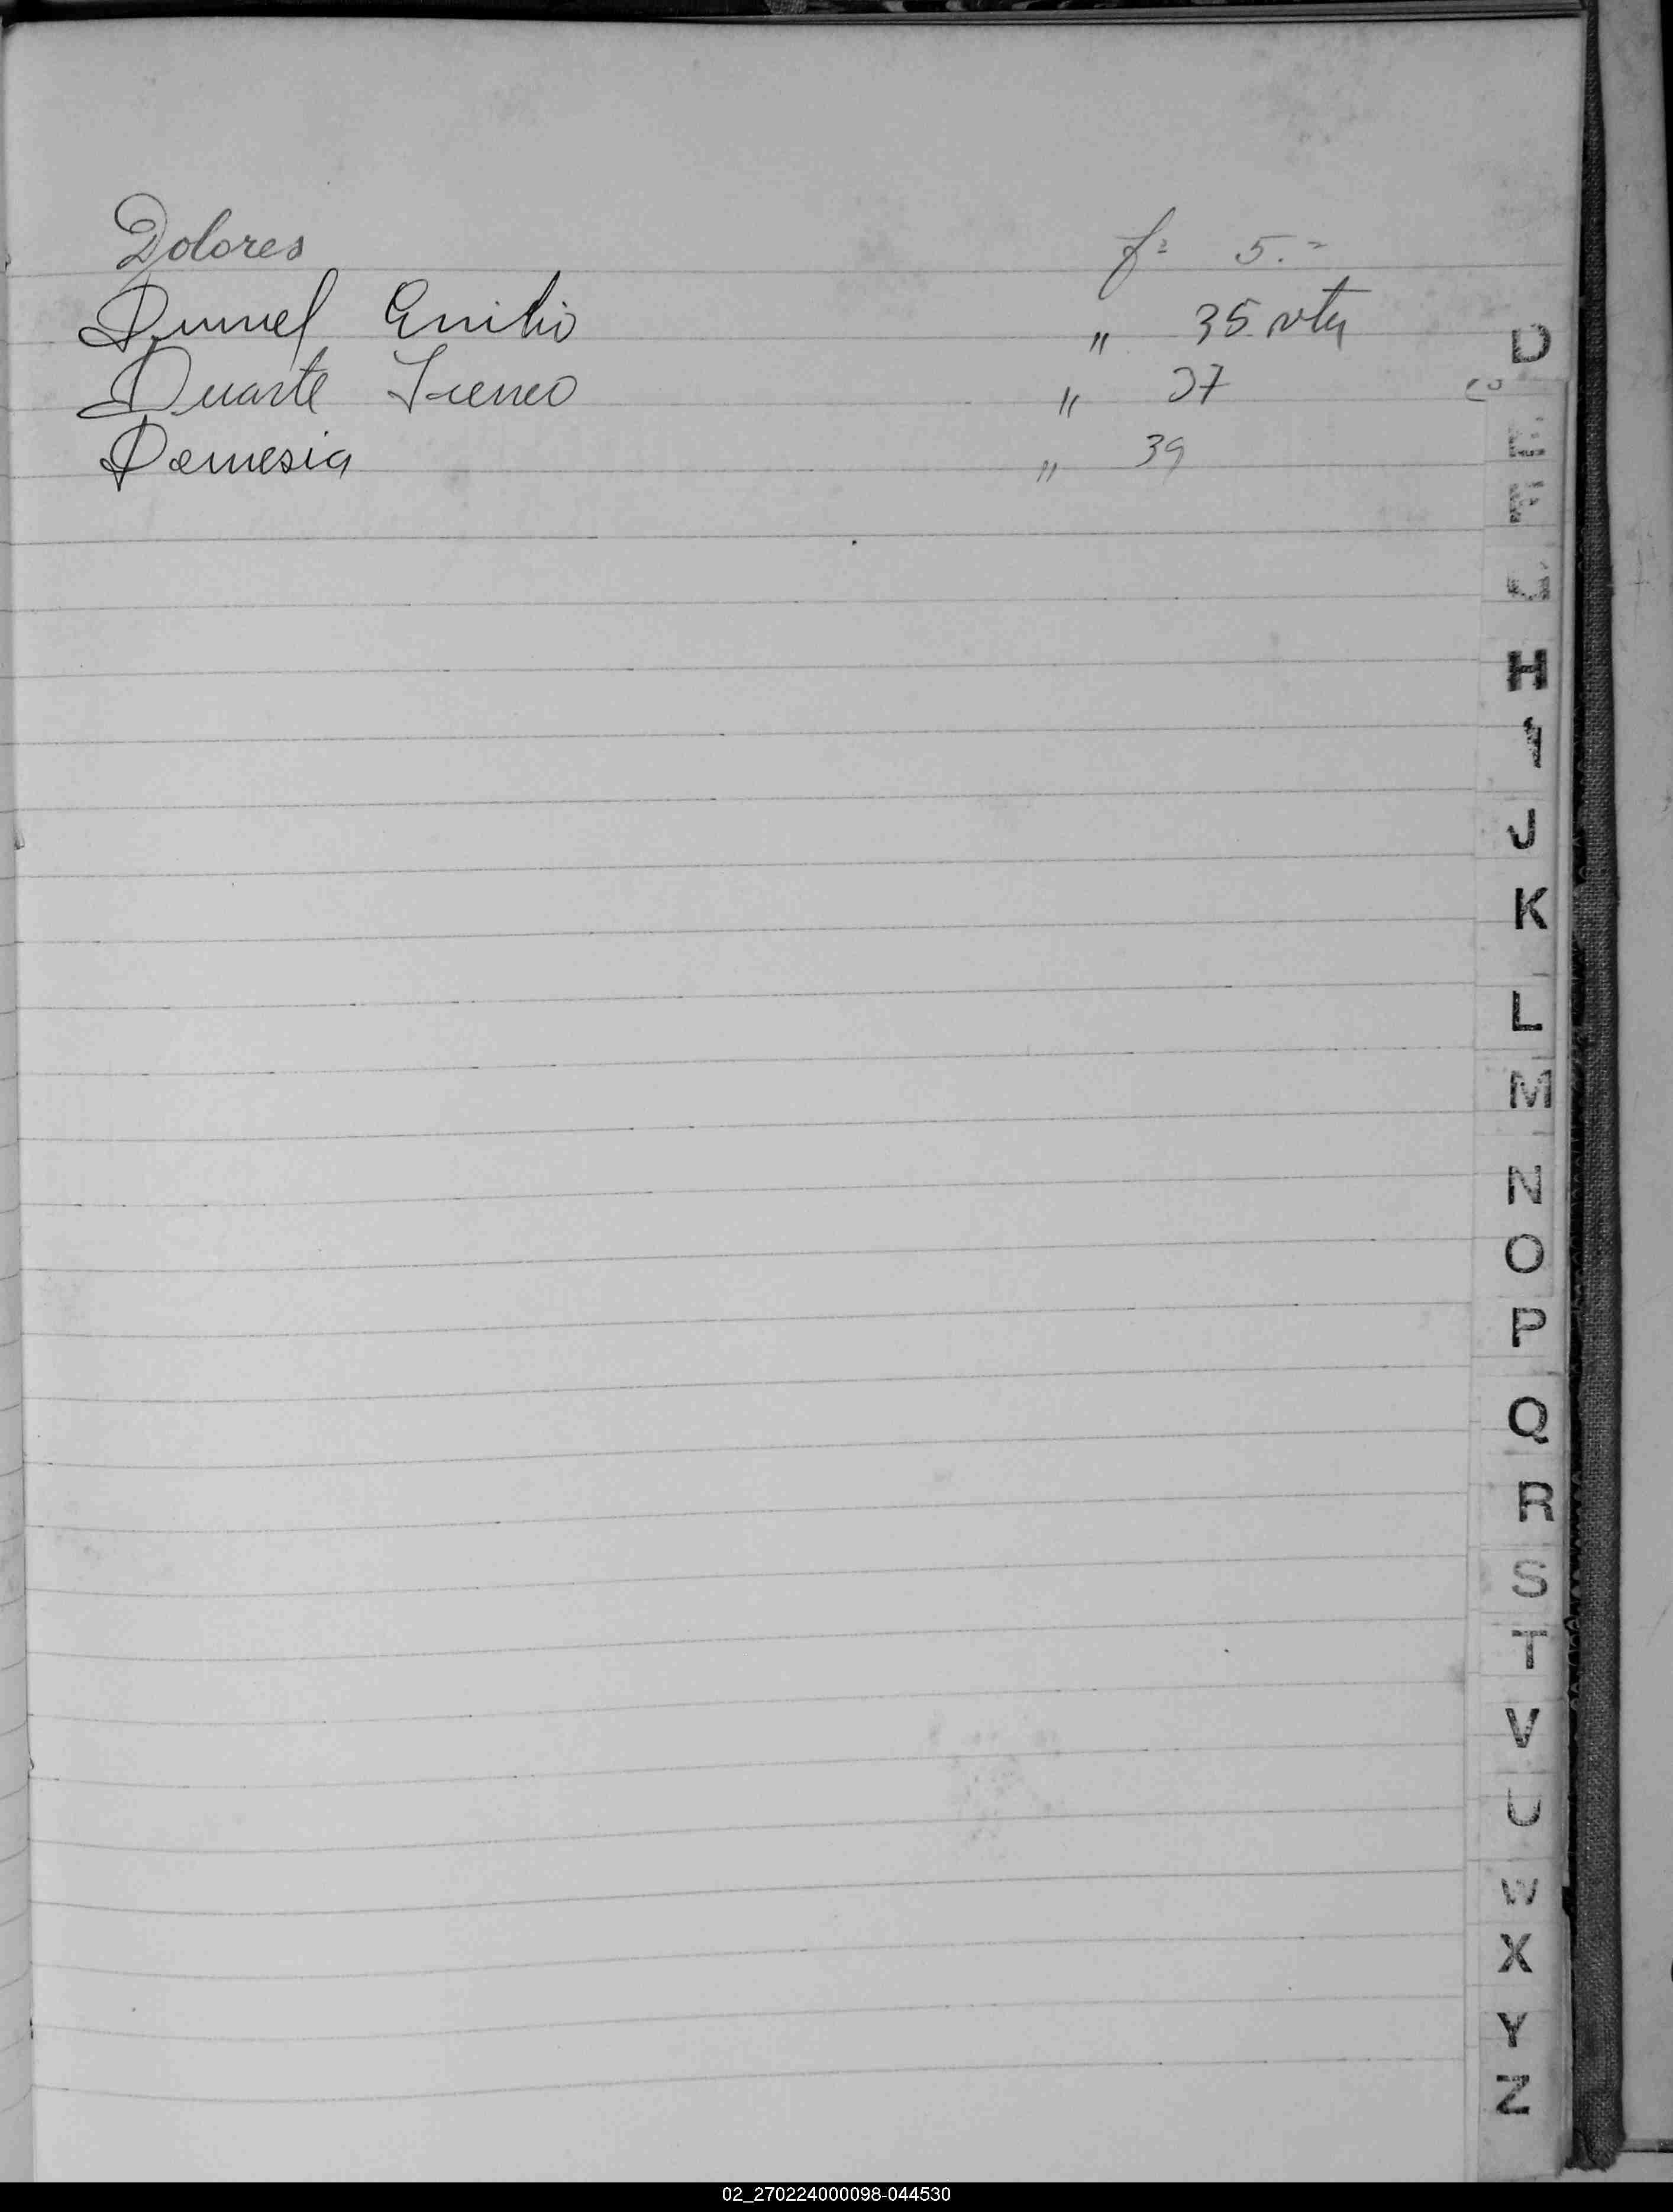 Dolores f= 5.=
Dumel Emilio " 35 vta
Duarte Ireneo " 37
Demesia " 39
D
E
F
G
H
I
J
K
L
M
N
O
P
Q
R
S
T
V
U
W
X
Y
Z
02_270224000098-044530